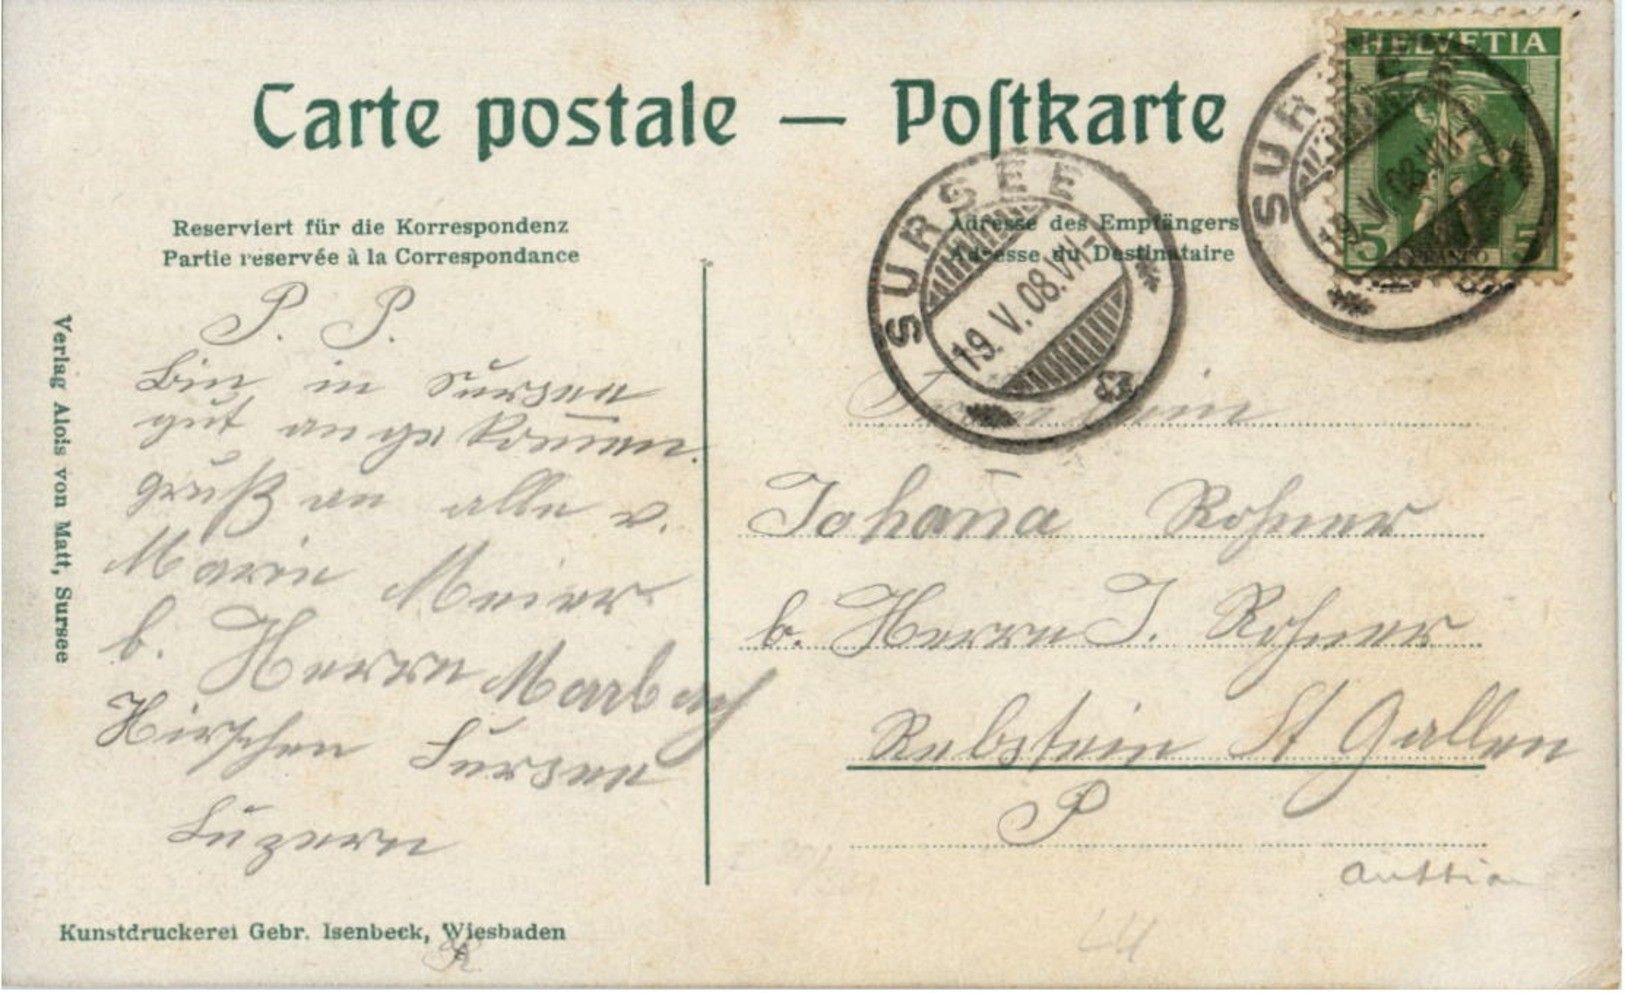 Carte postale — Postkarte
HELVETIA
5 5
FRANCO
SURSEE
19. V. 08. VII-
SURSEE
19. V. 08. VII-
Reserviert für die Korrespondenz
Partie réservée à la Correspondance
Adresse des Empfängers
Adresse du Destinataire
P. P.
Bin in Sursee
gut angekom̄en.
gruß an alle v.
Marie Meier
b. Herrn Marbach
Hirschen Sursee
Luzern
Johan̄a Rohner
b. Herrn J. Rohner
Rebstein St Gallen
P
Verlag Alois von Matt, Sursee
Kunstdruckerei Gebr. Isenbeck, Wiesbaden
LU